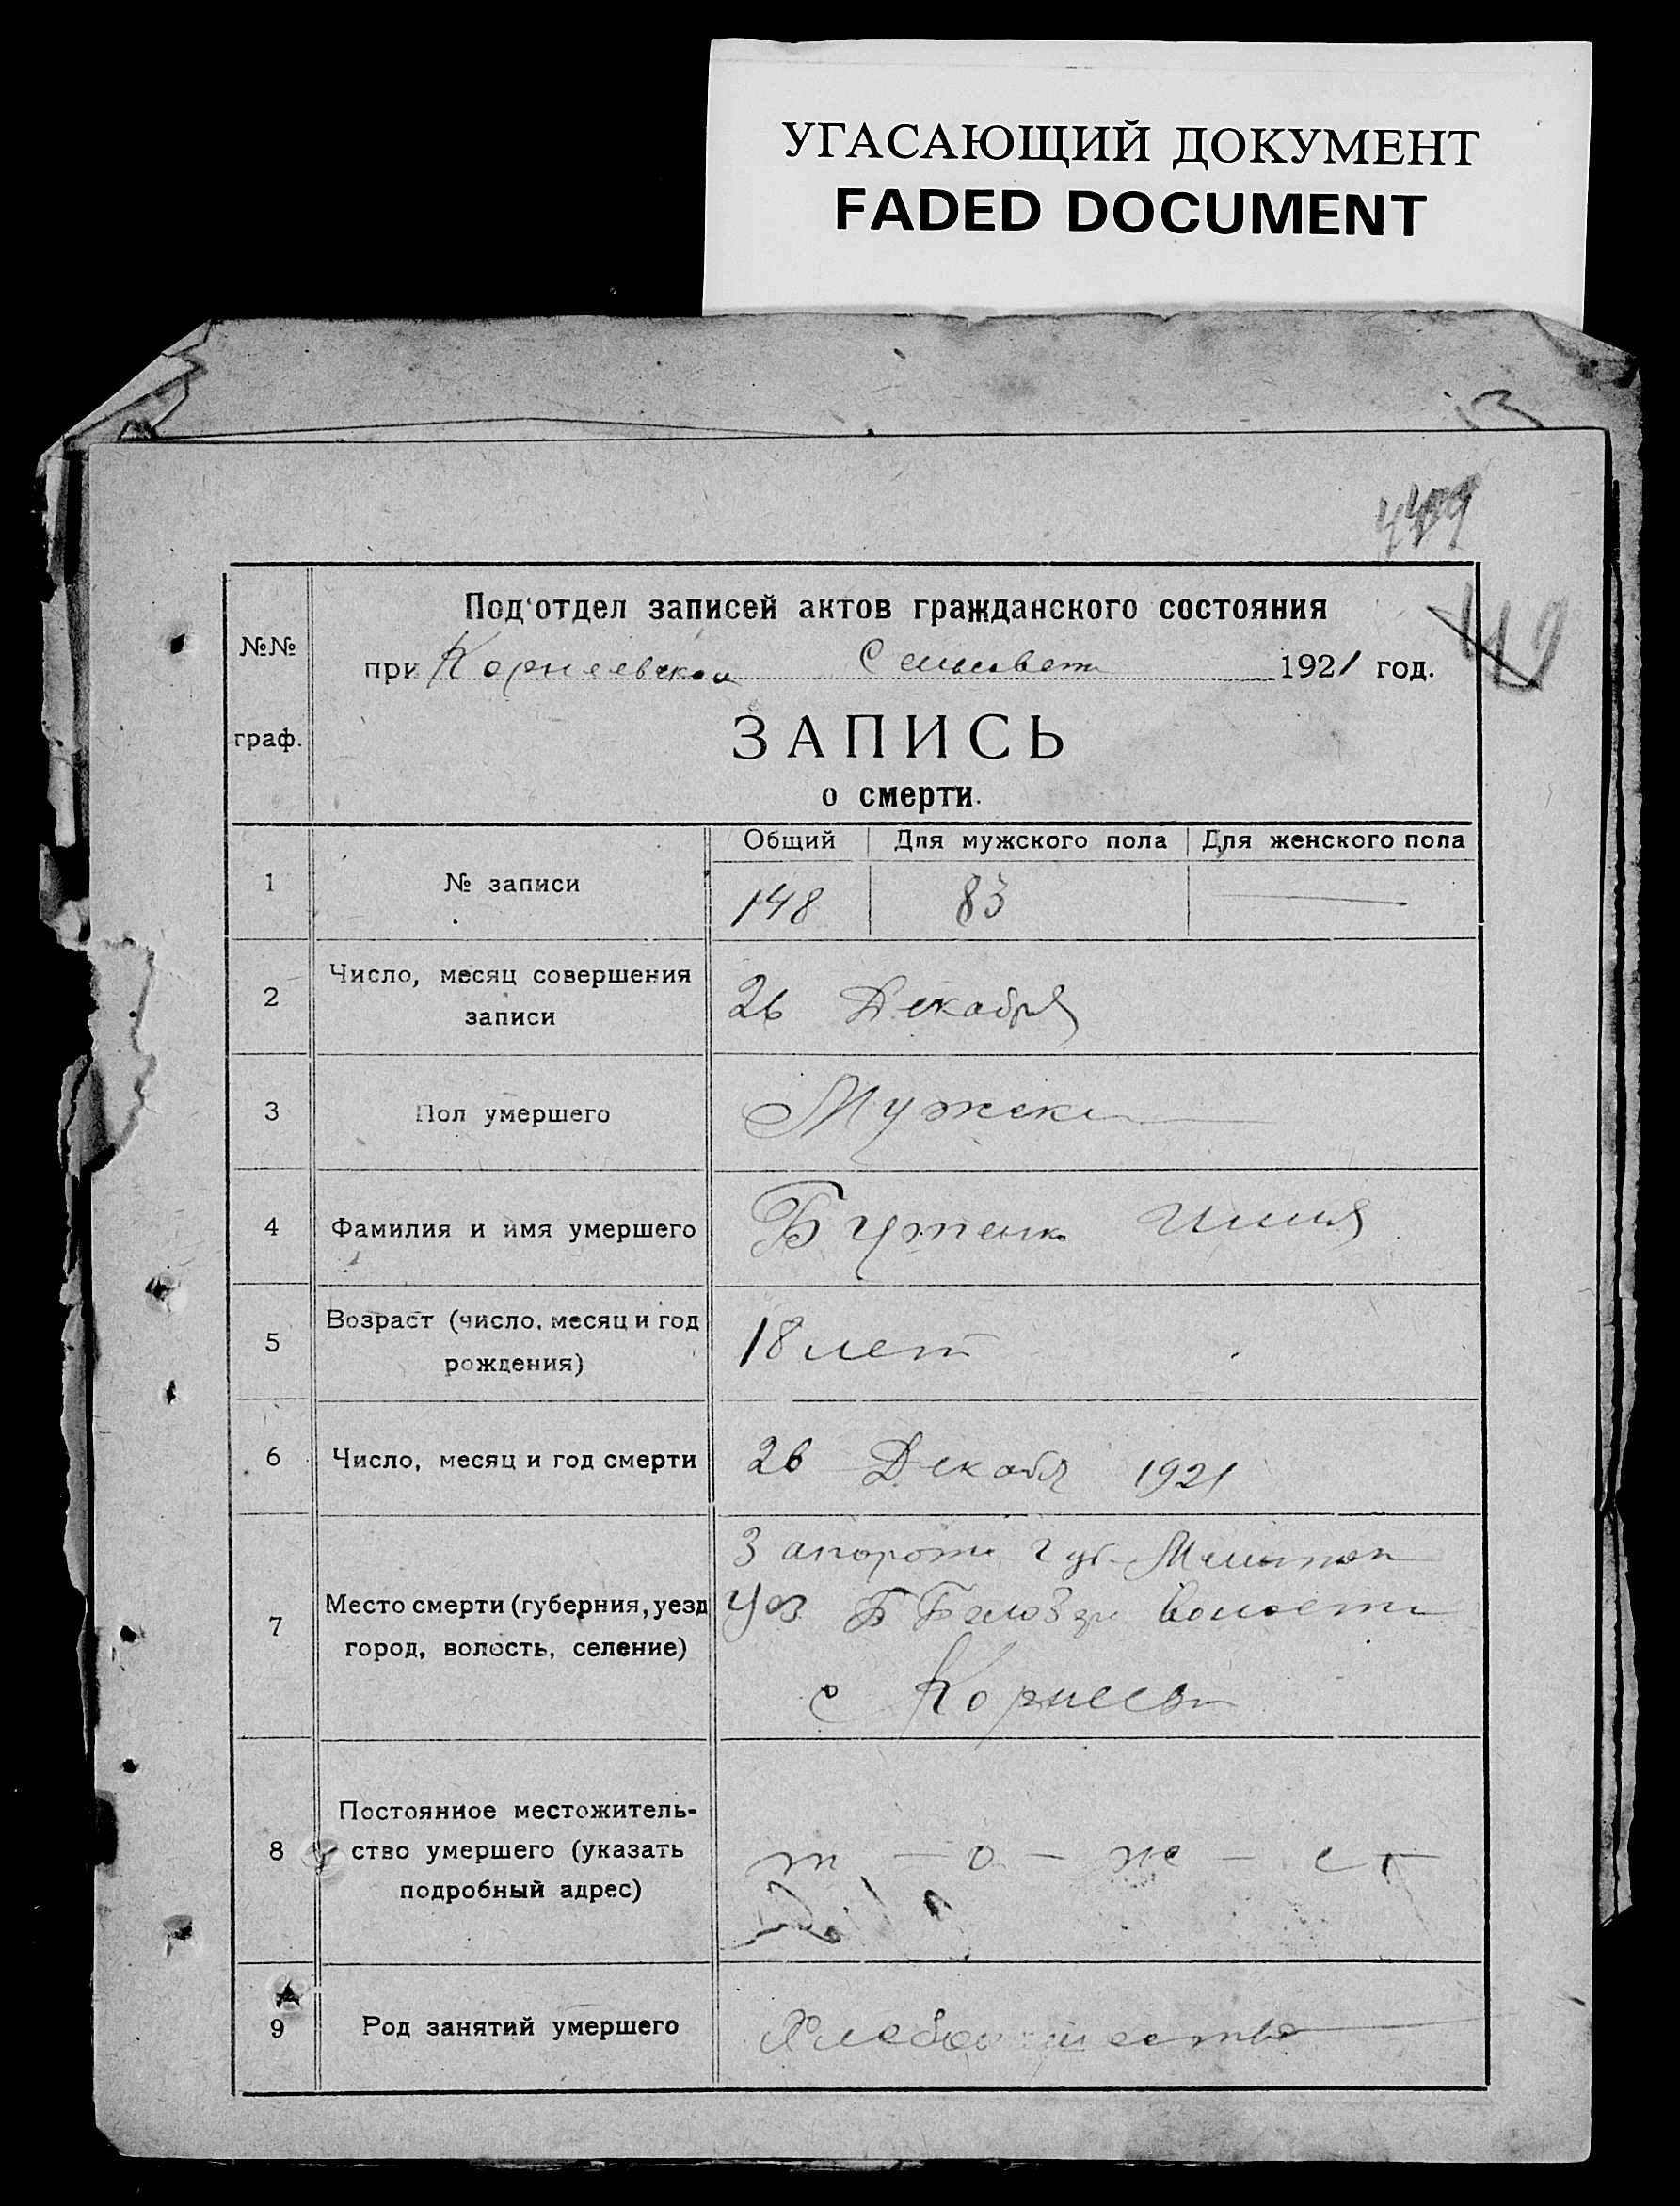 УГАСАЮЩИЙ ДОКУМЕНТ
FADED DOCUMENT
449
119
Под'отдел записей актов гражданского состояния
№№
при Корнеевском Сельсовет 1921 год.
граф.
ЗАПИСЬ
о смерти.
Общий Для мужского пола Для женского пола
1 № записи 148 83 —
2 Число, месяц совершения
записи 26 Декабря
3 Пол умершего Мужск
4 Фамилия и имя умершего Бутенко Илия
5 Возраст (число, месяц и год
рождения) 18 лет
6 Число, месяц и год смерти 26 Декабря 1921
Запорож губ Мелитоп
7 Место смерти (губерния, уезд
город, волость, селение) Уез Б Белозер волости
с Корнеевк
Постоянное местожитель-
8 ство умершего (указать т - о - же - с -
подробный адрес)
9 Род занятий умершего Хлебопашество